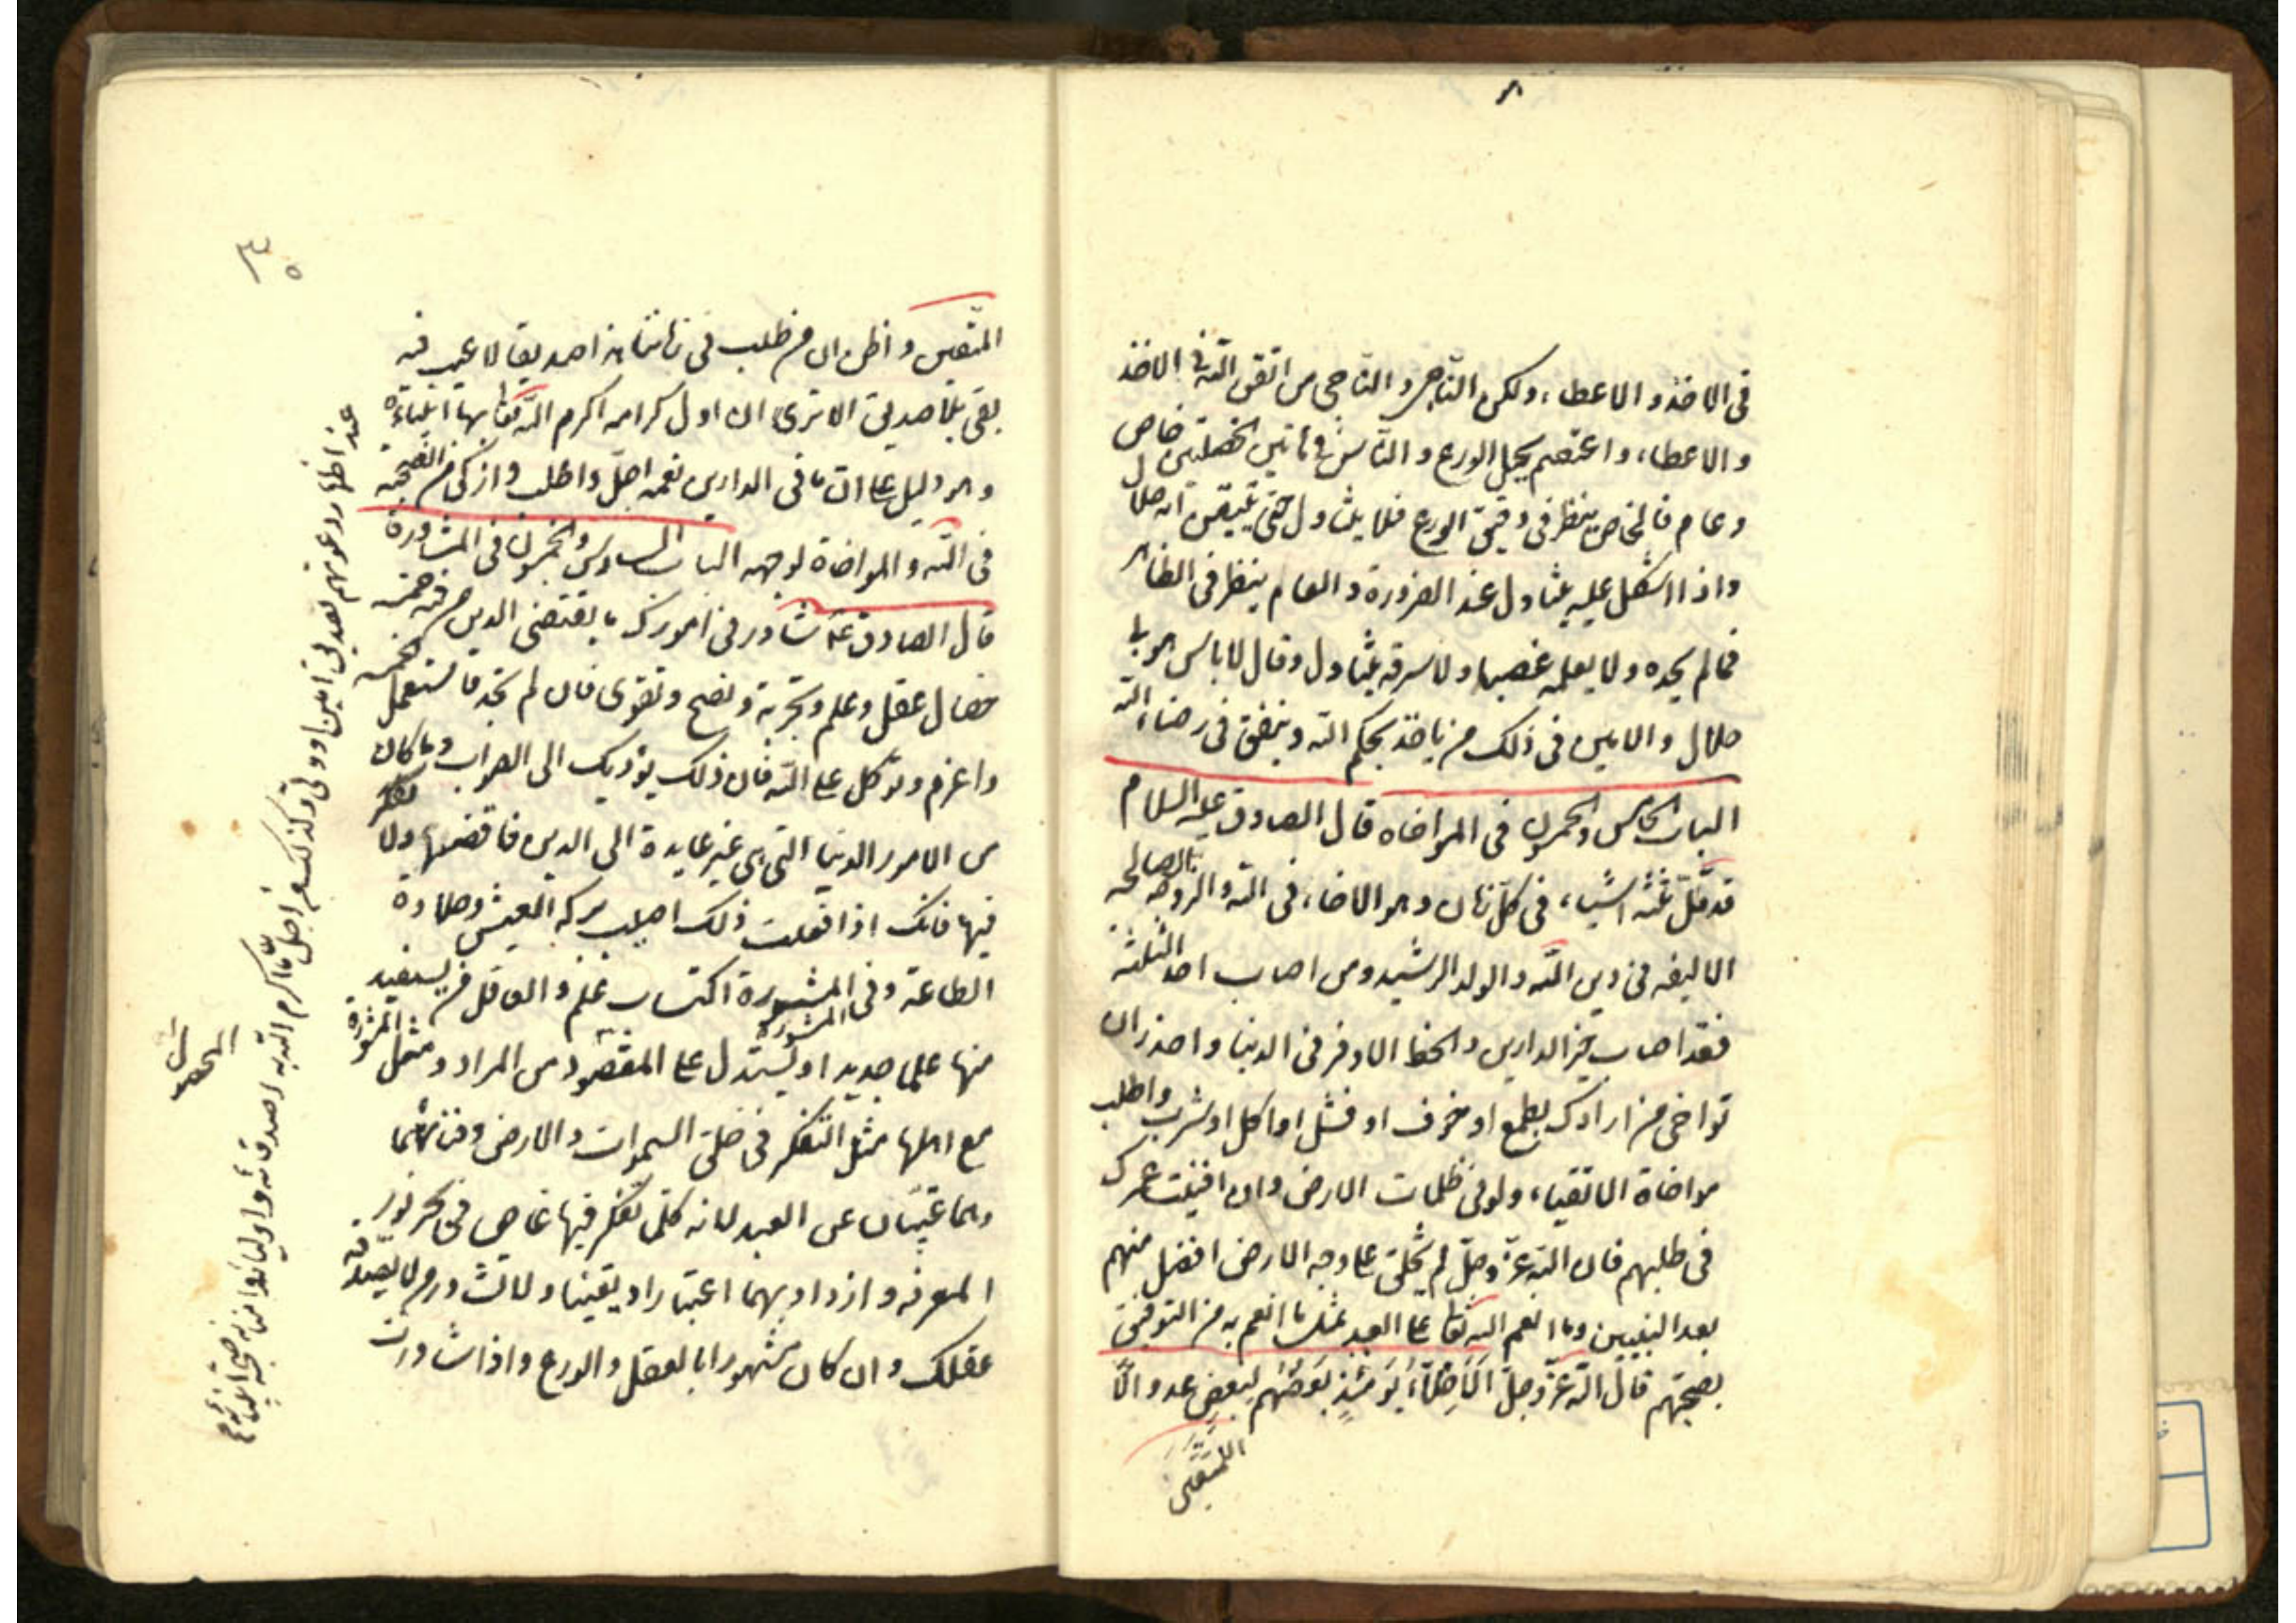 فى الاخذ و الاعطاء ولكن الناجى و الناجى من اتقى الله فى الاخذ
و الاعطاء و اعتصم بحبل الورع و الناس فى هاتين الخصلتين خاص
و عام فالخاص ينظر فى دقيق الورع فلا يتناول حتى يتيقن انه حلال
واذا اشكل عليه يتناول عند الضرورة و العام ينظر فى الظاهر
فما لم يجده ولا يعلمه غصبا ولا سرقه يتناول وقال لا باس هو لى
حلال والامين فى ذلك من ياخذ بحكم الله وينفق فى رضاء الله
الباب الخامس والخمسون فى المواخاه قال الصادق عليه السلام
قد قل ثلثه اشياء فى كل زمان وهو الاخاء فى الله والزوجه الصالحه
الاليفه فى دين الله والولد الرشيد ومن اصاب احد الثلثه
فقد اصاب خير الدارين والحظ الاوفر فى الدنيا واحذر ان
تواخى من ارادك بطمع او خوف او فشل او اكل او شرب واطلب
مواخاة الاتقياء ولو فى ظلمات الارض وان افنيت عمرك
فى طلبهم فان الله عز وجل لم يخلق على وجه الارض افضل منهم
بعد النبيين وما انعم الله تعا على العبد بمثل ما انعم به من التوفيق
بصحبتهم قال الله عز وجل الاخلاء يومئذ بعضهم لبعض عدو الا
المتقين
۳۵
المتقين واظن ان من طلب فى زماننا هذا صديقا لا عيب فيه
بقى بلا صديق الا ترى ان اول كرامه اكرم الله تعا بها انبياءه
وهو دليل على ان ما فى الدارين نعمه اجل واطلب وازكى من الصحبه
فى الله و المواخاة لوجهه الباب السادس والخمسون فى المشاورة
قال الصادق ع شاور فى امورك ما يقتضى الدين من فيه خمس
خصال عقل وعلم وتجربة ونصح وتقوى فان لم تجد فاستعمل الخمسه
واعزم وتوكل على الله فان ذلك يؤديك الى الصواب وما كان
من الامور الدنيا التى هى غير عايدة الى الدين فاقضها ولا تفكر
فيها فانك اذا فعلت ذلك اصبت بركه العيش وحلاوة
الطاعة وفى المشورة اكتساب علم والعاقل من يستفيد
المشورة
منها علما جديدا ويستدل على المقصود من المراد ومثل المشورة
مع اهلها مثل التفكر فى خلق السموات والارض وفنائهما
وهما غيبان عن العبد لانه كلما تفكر فيها غاص فى بحر نور
المعرفه و ازداد بهما اعتبارا ويقينا ولا تشاور من لا يصدقه
عقلك وان كان مشهورا بالعقل والورع واذا شاورت
عند اظهار دعوتهم تصديق امين او ولى وكذلك من اجل ما اكرم الله به اصدقائه واولياءه وامنائه صحبة انبيائه